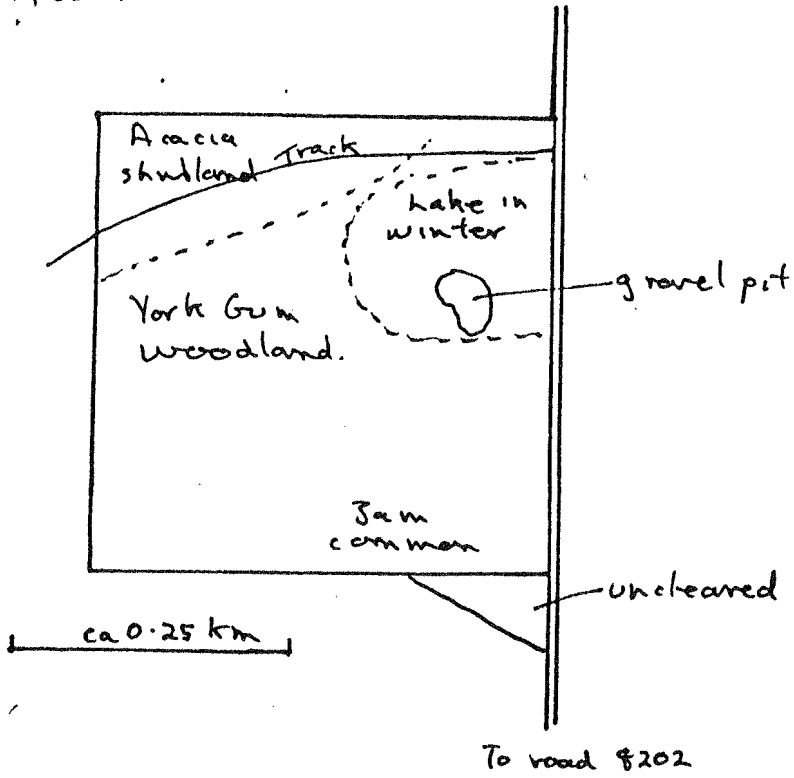 Acacia
shrubland
Track
Lake in
winter
gravel pit
York Gum
woodland.
Jam
common
uncleared
ca 0.25 km
To road 8202